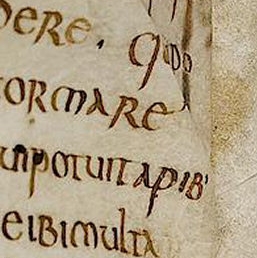 DERE. Qdo
FORMARE
uipotuit apib'
eibimulta